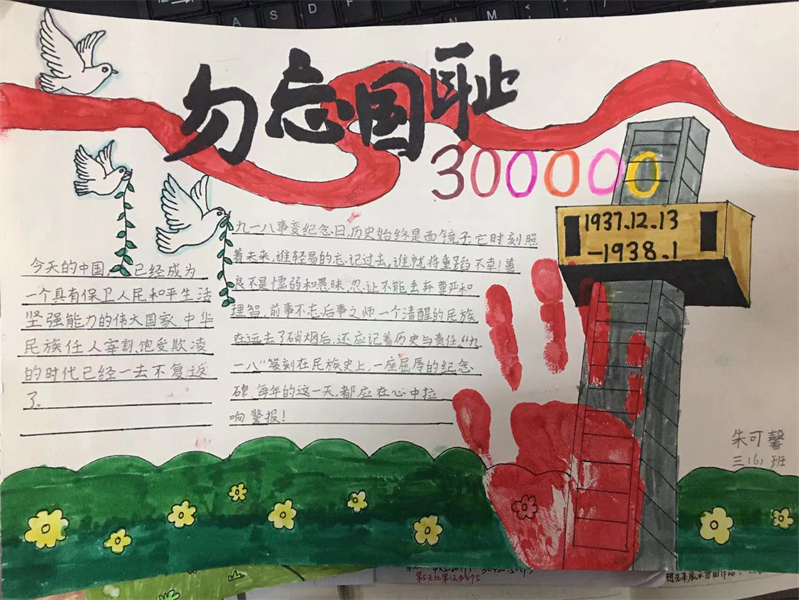 勿忘国耻
300000
1937.12.13
-1938.1
今天的中国,已经成为
一个具有保卫人民和平生活
坚强能力的伟大国家、中华
民族任人宰割、饱受欺凌
的时代已经一去不复返
了.
九一八事变纪念日,历史始终是面镜子,它时刻照
着未来,谁轻易的忘记过去,谁就将重蹈不幸!善
良不是懦弱和愚昧,忍让不能丢弃尊严和
理智,前事不忘,后事之师一个清醒的民族
在远去了硝烟后,还应记着历史与责任,“九
一八”篆刻在民族史上,一座屈辱的纪念
碑,每年的这一天,都应在心中拉
响警报!
朱可馨
三(6)班